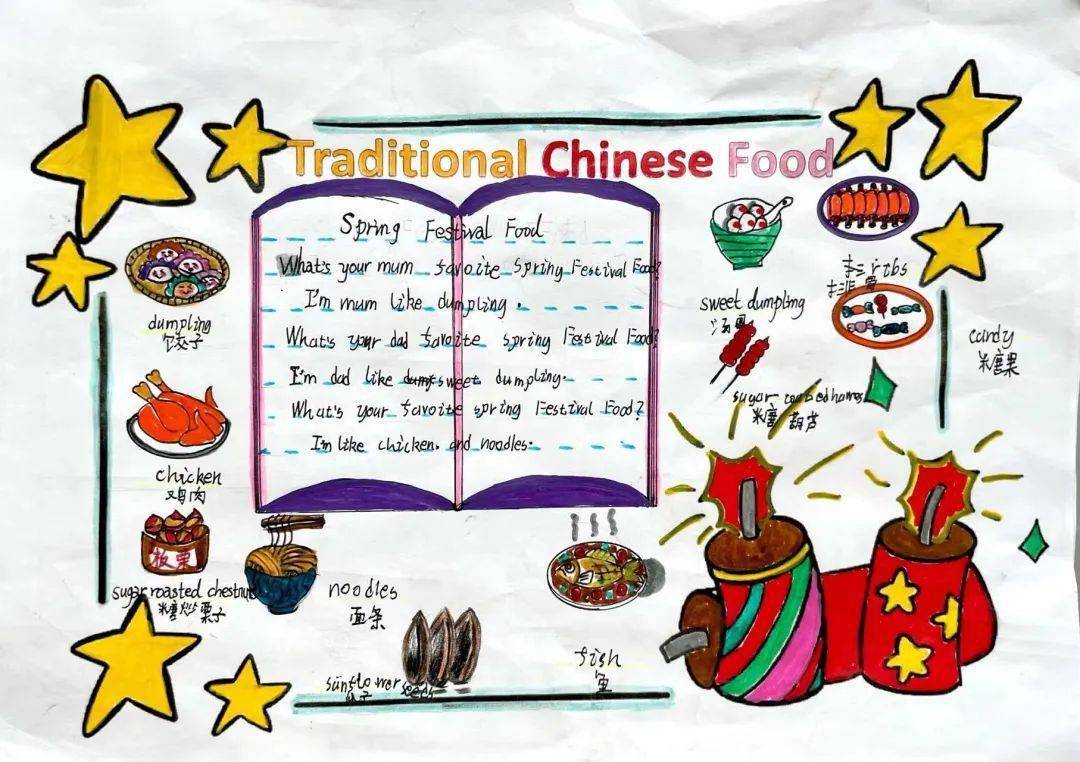 Traditional Chinese Food
Spring Festival Food
What's your mum favoite Spring Festival Food?
I'm mum like dumpling.
What's your dad favoite spring Festival Food?
I'm dad like sweet dumpling.
What's your favoite spring Festival Food?
I'm like chicken. and noodles.
dumpling
饺子
chicken
鸡肉
板栗
sugar roasted chestnuts
糖炒栗子
noodles
面条
sunflower seeds
fish
鱼
sweet dumpling
汤圆
ribs
排骨
candy
糖果
sugar
糖葫芦